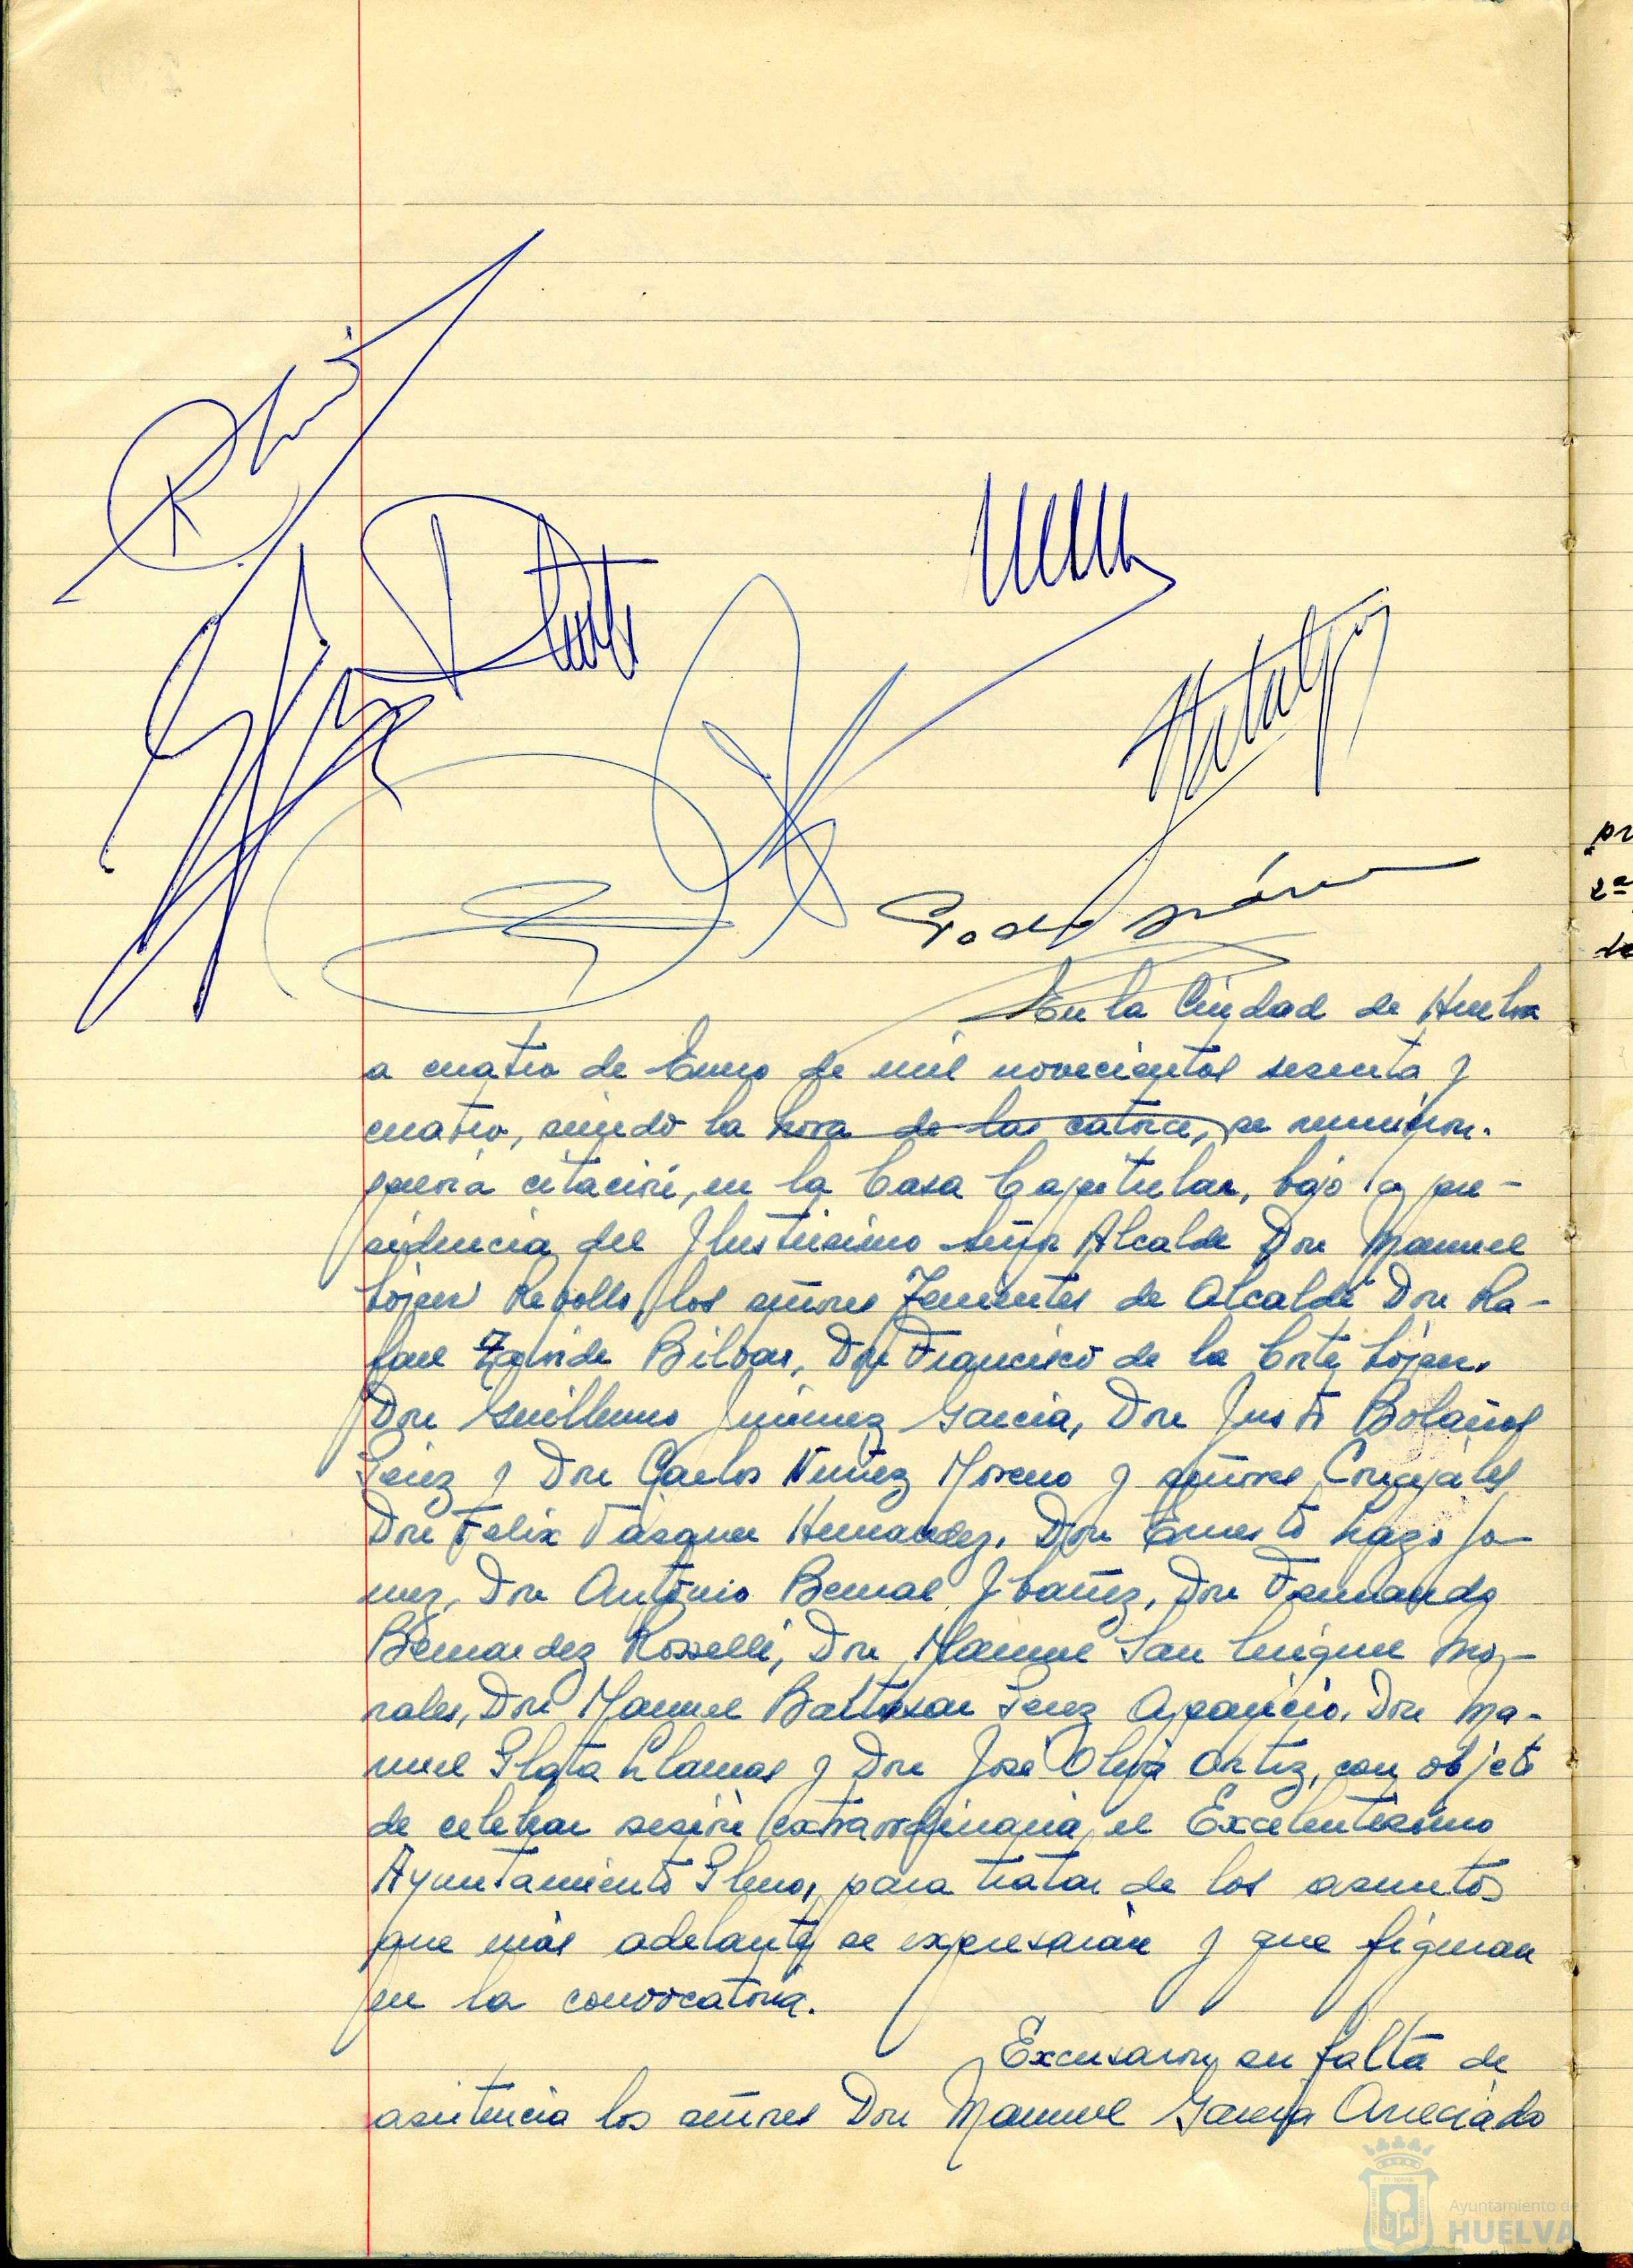 En la Ciudad de Huelva
a cuatro de Enero de mil novecientos sesenta y
cuatro, siendo la hora de las catorce, se reunieron.
previa citación, en la Casa Capitular, bajo la pre-
sidencia del Ilustrisimo señor Alcalde Don Manuel
López Rebollo, los señores Tenientes de Alcalde Don Ra-
fael Bilbao, Don Francisco de la Corte López.
Don Guillermo Jimenez Garcia, Don Justo Bolaños
Perez y Don Carlos Nuñez Moreno y señores Concejales
Don Felix Vazquez Hernandez. Don Ernesto Lazo Jo-
Don Antonio Bernal Ibañez, Don Fernando
Bernardez Rosselli, Don Manuel San Miguel Mo-
rales, Don Manuel Baltasar Perez Aparicio. Don Ma-
nuel Plata Llamas y Don José Oliva Ortiz, con objeto
de celebrar sesión extraordinaria, el Excelentisimo
Ayuntamiento Pleno, para tratar de los asuntos
que más adelante se expresarán y que figuran
en la convocatoria.
Excusaron su falta de
asistencia los señores Don Manuel Garcia
pr
2ª
de
Ayuntamiento de
HUELVA